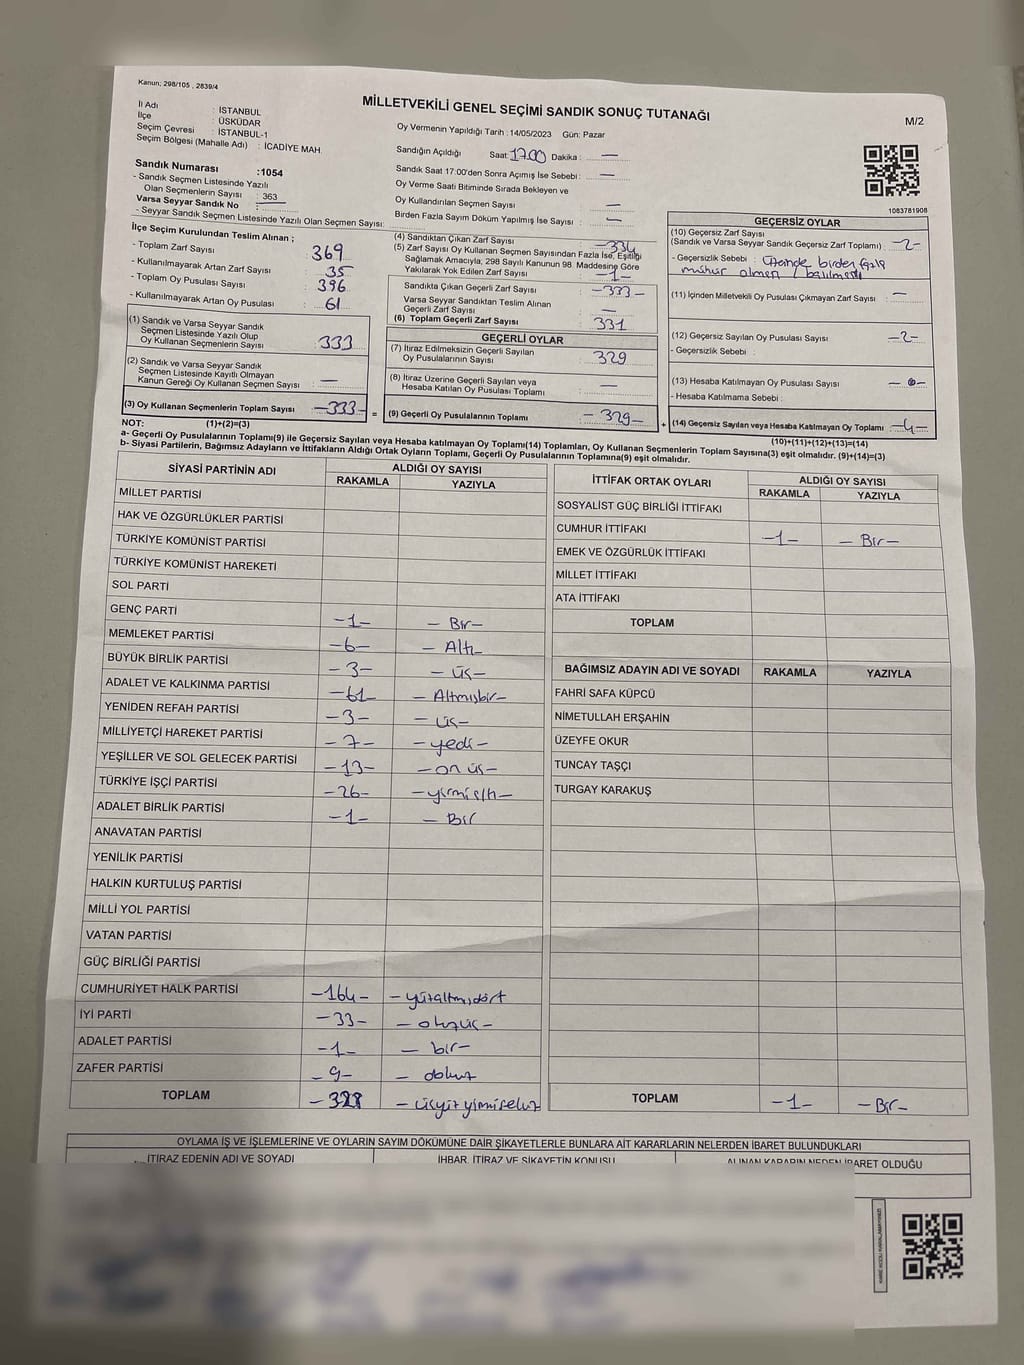 Kanun; 298/105 , 2839/4
MİLLETVEKİLİ GENEL SEÇİMİ SANDIK SONUÇ TUTANAĞI
M/2
İl Adı : İSTANBUL
İlçe : ÜSKÜDAR
Seçim Çevresi : İSTANBUL-1
Seçim Bölgesi (Mahalle Adı) : İCADİYE MAH.
Sandık Numarası :1054
- Sandık Seçmen Listesinde Yazılı
Olan Seçmenlerin Sayısı : 363
Varsa Seyyar Sandık No :
- Seyyar Sandık Seçmen Listesinde Yazılı Olan Seçmen Sayısı:
Oy Vermenin Yapıldığı Tarih : 14/05/2023 Gün: Pazar
Sandığın Açıldığı Saat: 17.00 Dakika : —
Sandık Saat 17:00'den Sonra Açımış İse Sebebi : —
Oy Verme Saati Bitiminde Sırada Bekleyen ve
Oy Kullandırılan Seçmen Sayısı : —
Birden Fazla Sayım Döküm Yapılmış İse Sayısı : —
1083781908
İlçe Seçim Kurulundan Teslim Alınan ;
- Toplam Zarf Sayısı : 369
- Kullanılmayarak Artan Zarf Sayısı : 35
- Toplam Oy Pusulası Sayısı : 396
- Kullanılmayarak Artan Oy Pusulası : 61
(1) Sandık ve Varsa Seyyar Sandık
Seçmen Listesinde Yazılı Olup
Oy Kullanan Seçmenlerin Sayısı : 333
(2) Sandık ve Varsa Seyyar Sandık
Seçmen Listesinde Kayıtlı Olmayan
Kanun Gereği Oy Kullanan Seçmen Sayısı : —
(3) Oy Kullanan Seçmenlerin Toplam Sayısı —333— =
(4) Sandıktan Çıkan Zarf Sayısı : —334
(5) Zarf Sayısı Oy Kullanan Seçmen Sayısından Fazla İse, Eşitliği
Sağlamak Amacıyla, 298 Sayılı Kanunun 98. Maddesine Göre
Yakılarak Yok Edilen Zarf Sayısı : —1—
Sandıkta Çıkan Geçerli Zarf Sayısı : —333—
Varsa Seyyar Sandıktan Teslim Alınan
Geçerli Zarf Sayısı : —
(6) Toplam Geçerli Zarf Sayısı : 331
GEÇERLİ OYLAR
(7) İtiraz Edilmeksizin Geçerli Sayılan
Oy Pusulalarının Sayısı : 329
(8) İtiraz Üzerine Geçerli Sayılan veya
Hesaba Katılan Oy Pusulası Toplamı : —
(9) Geçerli Oy Pusulalarının Toplamı : —329— +
GEÇERSİZ OYLAR
(10) Geçersiz Zarf Sayısı
(Sandık ve Varsa Seyyar Sandık Geçersiz Zarf Toplamı) : —2—
- Geçersizlik Sebebi : birden fazla
mühür
(11) İçinden Milletvekili Oy Pusulası Çıkmayan Zarf Sayısı : —
(12) Geçersiz Sayılan Oy Pusulası Sayısı : —2—
- Geçersizlik Sebebi :
(13) Hesaba Katılmayan Oy Pusulası Sayısı : —0—
- Hesaba Katılmama Sebebi :
(14) Geçersiz Sayılan veya Hesaba Katılmayan Oy Toplamı : —4—
NOT: (1)+(2)=(3) (10)+(11)+(12)+(13)=(14)
a- Geçerli Oy Pusulalarının Toplamı(9) ile Geçersiz Sayılan veya Hesaba katılmayan Oy Toplamı(14) Toplamları, Oy Kullanan Seçmenlerin Toplam Sayısına(3) eşit olmalıdır. (9)+(14)=(3)
b- Siyasi Partilerin, Bağımsız Adayların ve İttifakların Aldığı Ortak Oyların Toplamı, Geçerli Oy Pusulalarının Toplamına(9) eşit olmalıdır.
SİYASİ PARTİNİN ADI ALDIĞI OY SAYISI
RAKAMLA YAZIYLA
MİLLET PARTİSİ
HAK VE ÖZGÜRLÜKLER PARTİSİ
TÜRKİYE KOMÜNİST PARTİSİ
TÜRKİYE KOMÜNİST HAREKETİ
SOL PARTİ
GENÇ PARTİ —1— —Bir—
MEMLEKET PARTİSİ —6— —Altı
BÜYÜK BİRLİK PARTİSİ —3— —üç—
ADALET VE KALKINMA PARTİSİ —61— —Altmışbir—
YENİDEN REFAH PARTİSİ —3— —üç—
MİLLİYETÇİ HAREKET PARTİSİ —7— —yedi—
YEŞİLLER VE SOL GELECEK PARTİSİ —13— —on üç—
TÜRKİYE İŞÇİ PARTİSİ —26— —yirmialtı—
ADALET BİRLİK PARTİSİ —1— —Bir
ANAVATAN PARTİSİ
YENİLİK PARTİSİ
HALKIN KURTULUŞ PARTİSİ
MİLLİ YOL PARTİSİ
VATAN PARTİSİ
GÜÇ BİRLİĞİ PARTİSİ
CUMHURİYET HALK PARTİSİ —164— —yüzaltmışdört
İYİ PARTİ —33— —otuzüç—
ADALET PARTİSİ —1— —bir—
ZAFER PARTİSİ —9— —dokuz
TOPLAM —328 —üçyüzyirmisekiz
İTTİFAK ORTAK OYLARI ALDIĞI OY SAYISI
RAKAMLA YAZIYLA
SOSYALİST GÜÇ BİRLİĞİ İTTİFAKI
CUMHUR İTTİFAKI —1— —Bir—
EMEK VE ÖZGÜRLÜK İTTİFAKI
MİLLET İTTİFAKI
ATA İTTİFAKI
TOPLAM
BAĞIMSIZ ADAYIN ADI VE SOYADI RAKAMLA YAZIYLA
FAHRİ SAFA KÜPCÜ
NİMETULLAH ERŞAHİN
ÜZEYFE OKUR
TUNCAY TAŞÇI
TURGAY KARAKUŞ
TOPLAM —1— —Bir—
OYLAMA İŞ VE İŞLEMLERİNE VE OYLARIN SAYIM DÖKÜMÜNE DAİR ŞİKAYETLERLE BUNLARA AİT KARARLARIN NELERDEN İBARET BULUNDUKLARI
İTİRAZ EDENİN ADI VE SOYADI İHBAR, İTİRAZ VE ŞİKAYETİN KONUSU ALINAN KARARIN NEDEN İBARET OLDUĞU